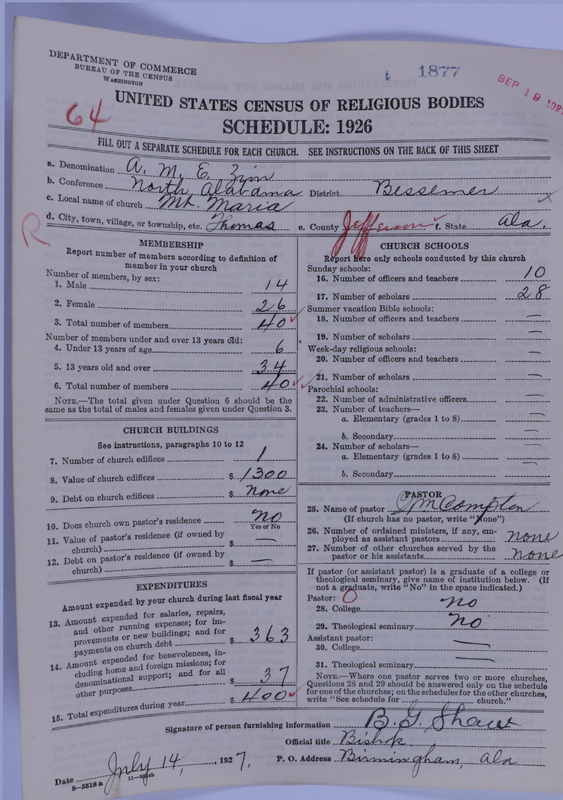 DEPARTMENT OF COMMERCE
BUREAU OF THE CENSUS
WASHINGTON
1877
SEP 19 192
64
UNITED STATES CENSUS OF RELIGIOUS BODIES
SCHEDULE: 1926
FILL OUT A SEPARATE SCHEDULE FOR EACH CHURCH. SEE INSTRUCTIONS ON THE BACK OF THIS SHEET
a. Denomination A. M. E. Zion
b. Conference North Alabama District Bessemer
c. Local name of church Mt. Maria
d. City, town, village, or township, etc. Thomas e. County Jefferson f. State Ala.
R
MEMBERSHIP
Report number of members according to definition of
member in your church
Number of members, by sex:
1. Male 14
2. Female 26
3. Total number of members 40
Number of members under and over 13 years old:
4. Under 13 years of age 6
5. 13 years old and over 34
6. Total number of members 40
NOTE.—The total given under Question 6 should be the
same as the total of males and females given under Question 3.
CHURCH BUILDINGS
See instructions, paragraphs 10 to 12
7. Number of church edifices 1
8. Value of church edifices $ 1300
9. Debt on church edifices $ None
10. Does church own pastor's residence No
Yes or No
11. Value of pastor's residence (if owned by
church) $ —
12. Debt on pastor's residence (if owned by
church) $ —
EXPENDITURES
Amount expended by your church during last fiscal year
13. Amount expended for salaries, repairs,
and other running expenses; for im-
provements or new buildings; and for
payments on church debt $ 363
14. Amount expended for benevolences, in-
cluding home and foreign missions; for
denominational support; and for all
other purposes $ 37
15. Total expenditures during year $ 400
CHURCH SCHOOLS
Report here only schools conducted by this church
Sunday schools:
16. Number of officers and teachers 10
17. Number of scholars 28
Summer vacation Bible schools:
18. Number of officers and teachers —
19. Number of scholars —
Week-day religious schools:
20. Number of officers and teachers —
21. Number of scholars —
Parochial schools:
22. Number of administrative officers —
23. Number of teachers—
a. Elementary (grades 1 to 8) —
b. Secondary —
24. Number of scholars—
a. Elementary (grades 1 to 8) —
b. Secondary —
PASTOR
25. Name of pastor Compton
(If church has no pastor, write "None")
26. Number of ordained ministers, if any, em-
ployed as assistant pastors none
27. Number of other churches served by the
pastor or his assistants none
If pastor (or assistant pastor) is a graduate of a college or
theological seminary, give name of institution below. (If
not a graduate, write "No" in the space indicated.)
Pastor: 0
28. College no
29. Theological seminary No
Assistant pastor:
30. College —
31. Theological seminary —
NOTE.—Where one pastor serves two or more churches,
Questions 28 and 29 should be answered only on the schedule
for one of the churches; on the schedules for the other churches,
write "See schedule for church."
Signature of person furnishing information B. G. Shaw
Official title Bishop
Date July 14, 1927. P. O. Address Birmingham, Ala
8—5516 a